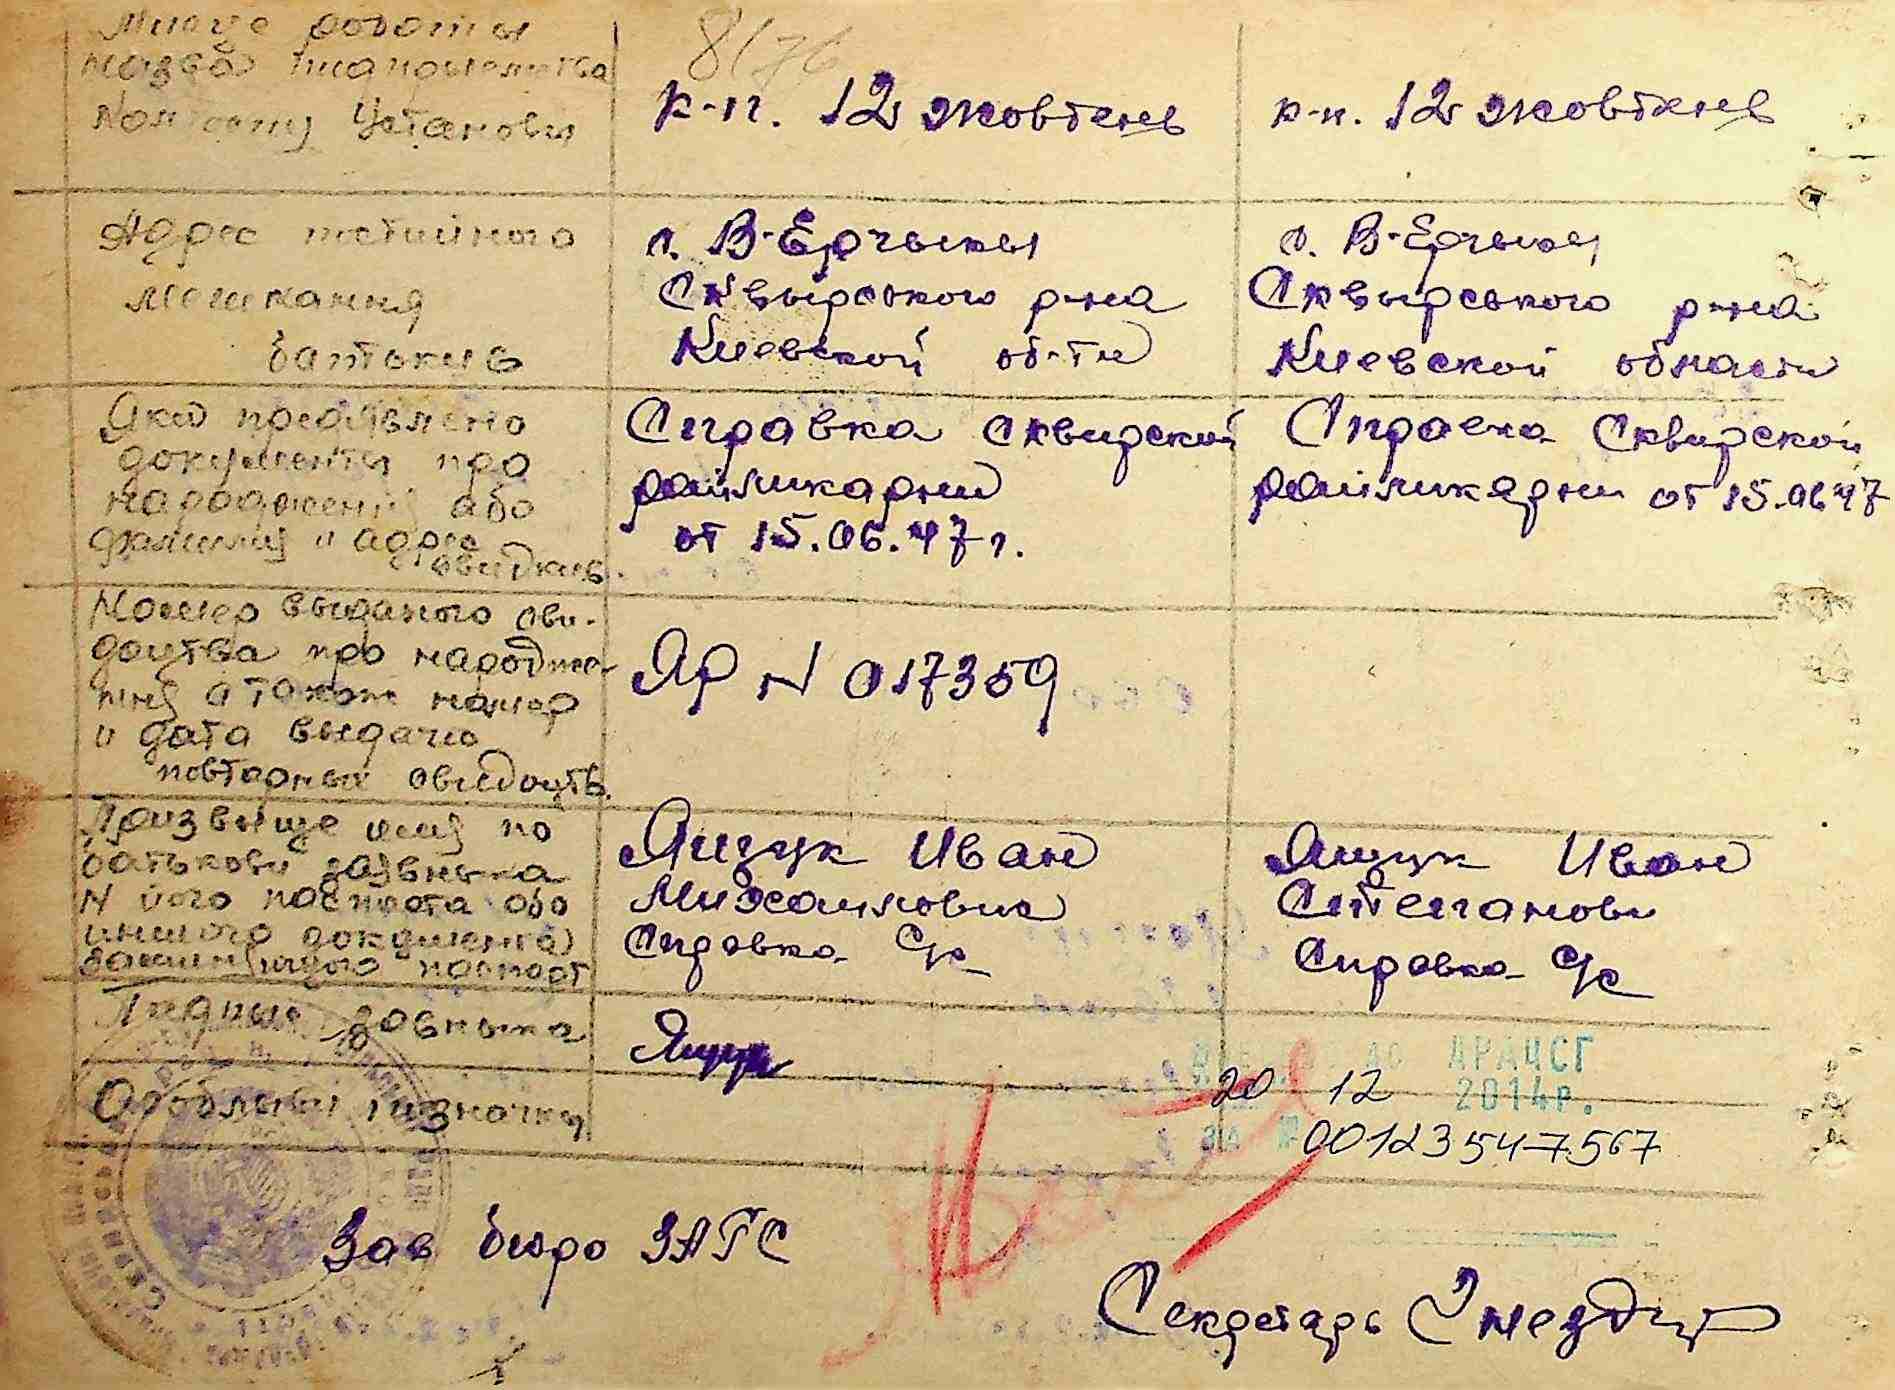 Мисце роботы
назва пидпрыемства
Колгоспу Установы
8/76
к-п. 12 жовтень
к-п. 12 жовтень
Адрес постийного
мешкання
батькив
с. В-Ерчыкы
Сквырського р-на
Киевской об-ти
с. В-Ерчыкы
Сквырського р-на
Киевской области
Яки предъявлено
документы про
народження або
фамилия и адрес
свидкив.
Справка Сквирской
райликарни
от 15.06.47 г.
Справка Сквирской
райликарни от 15.06 47
Номер выданого сви-
доцтва про народже-
ння а також номер
и дата выдачи
повторных свидоцтв.
ЯР N 017359
Призвыще имя по
батькови заявныка
N його паспорта або
иншого документа
заминяющого паспорт
Ящук Иван
Михайлович
Справка С/с
Ящук Иван
Степанови
Справка С/с
Пидпыс заявныка
Ящук
Особливи признаки
до ДРАЦСГ
20 12 2014р.
за № 00123547567
Зав бюро ЗАГС
Секретарь